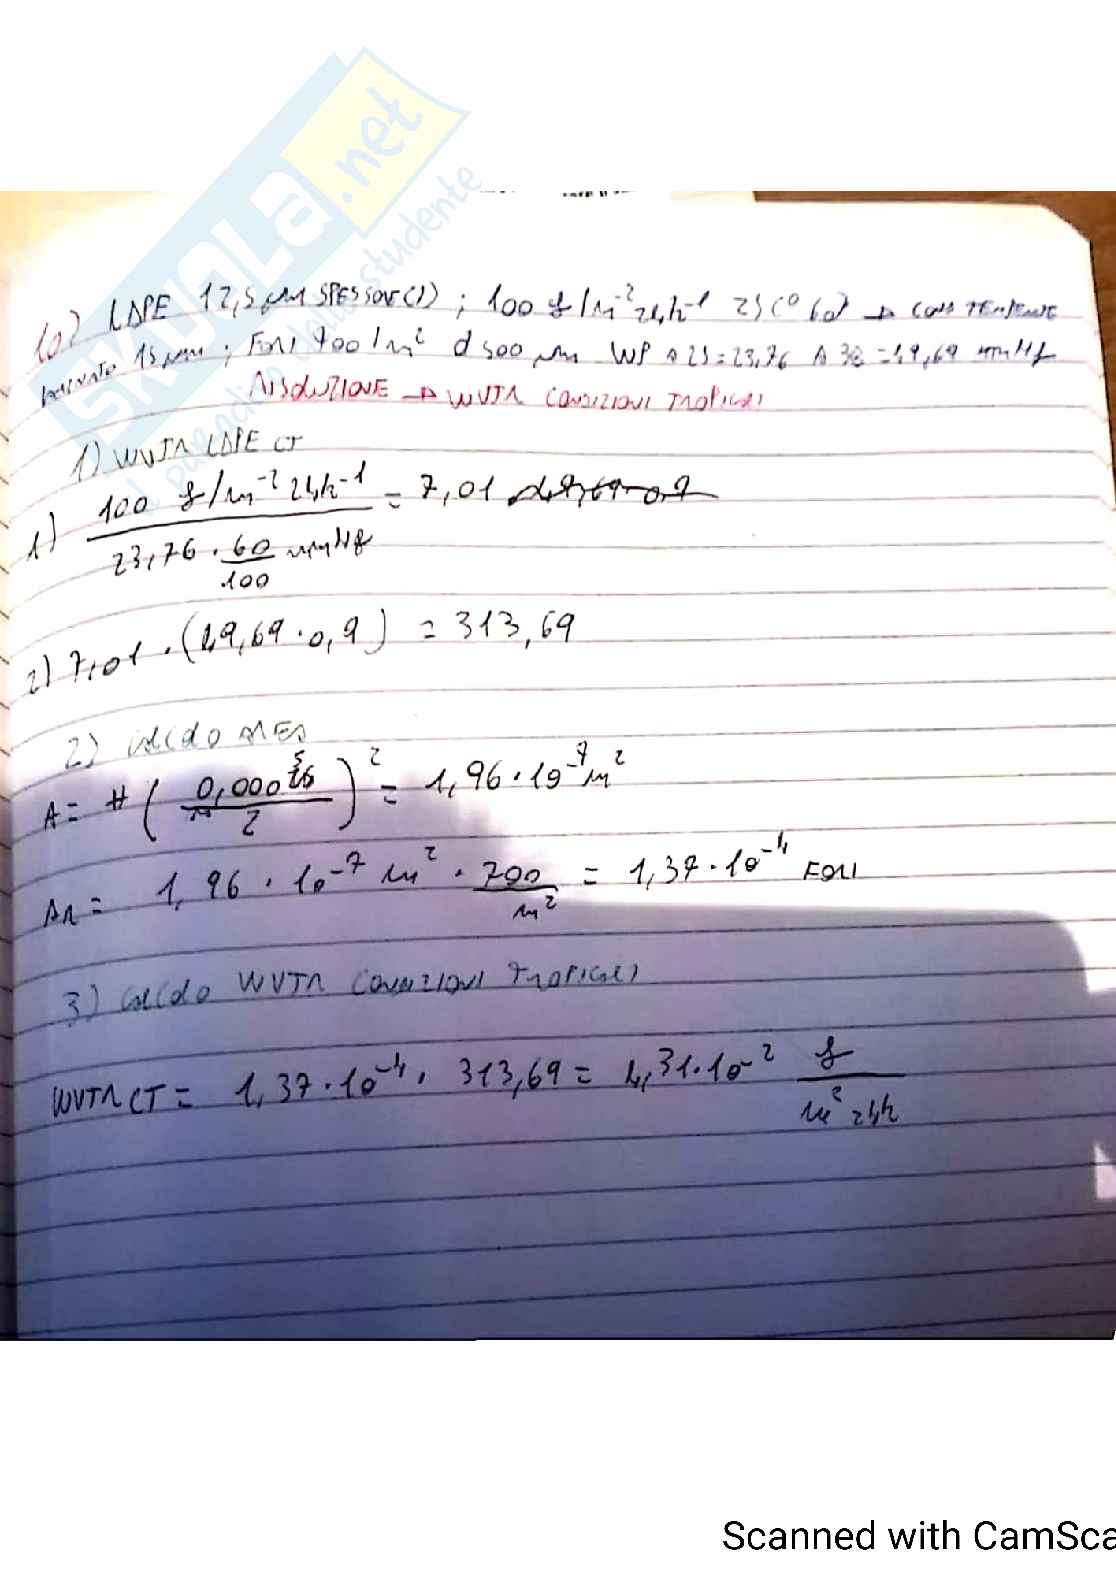 SKUOLA.net
il paradiso dello studente
10) LDPE 12,5 μm SPESSORE (1) ; 100 g/m⁻² 24h⁻¹ 25 C° 60% → CONTENENTE
15 μm ; FORI 700/m² d 500 μm WP a 25 = 23,76 A 38 = 49,69 mmHg
RISOLUZIONE → WVTR CONDIZIONI TROPICALI
1) WVTR LDPE CT
1) 100 g/m⁻² 24h⁻¹ / 23,76 · 60/100 mmHg = 7,01
2) 7,01 · (49,69 · 0,9) = 313,69
2) CALCOLO AREA
A = π (0,0005 / 2)² = 1,96 · 10⁻⁷ m²
AR = 1,96 · 10⁻⁷ m² · 700/m² = 1,37 · 10⁻⁴ FORI
3) CALCOLO WVTR CONDIZIONI TROPICALI
WVTR CT = 1,37 · 10⁻⁴ · 313,69 = 4,31 · 10⁻² g / m² 24h
Scanned with CamSca